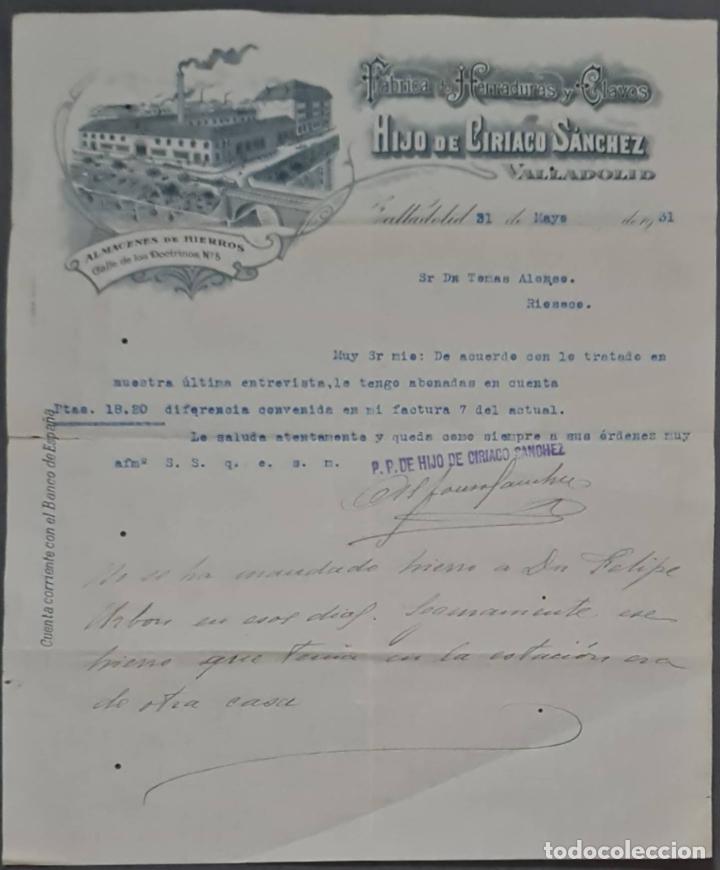 Fábrica de Herraduras y Clavos
HIJO DE CIRIACO SÁNCHEZ
VALLADOLID
ALMACENES DE HIERROS
Calle de los Doctrinos, Nº 5
Valladolid 31 de Mayo de 1931
Sr Dn Tomas Alonso.
Rioseco.
Muy Sr mio: De acuerdo con lo tratado en
nuestra última entrevista, le tengo abonadas en cuenta
Ptas. 18.20 diferencia convenida en mi factura 7 del actual.
Le saluda atentamente y queda como siempre a sus órdenes muy
afmº S. S. q. e. s. m.
P. P. DE HIJO DE CIRIACO SANCHEZ
Cuenta corriente con el Banco de España
No se ha mandado hierro a Dn Felipe
en esos dias. Seguramente ese
hierro que tenia en la estación era
de otra casa
todocoleccion.net